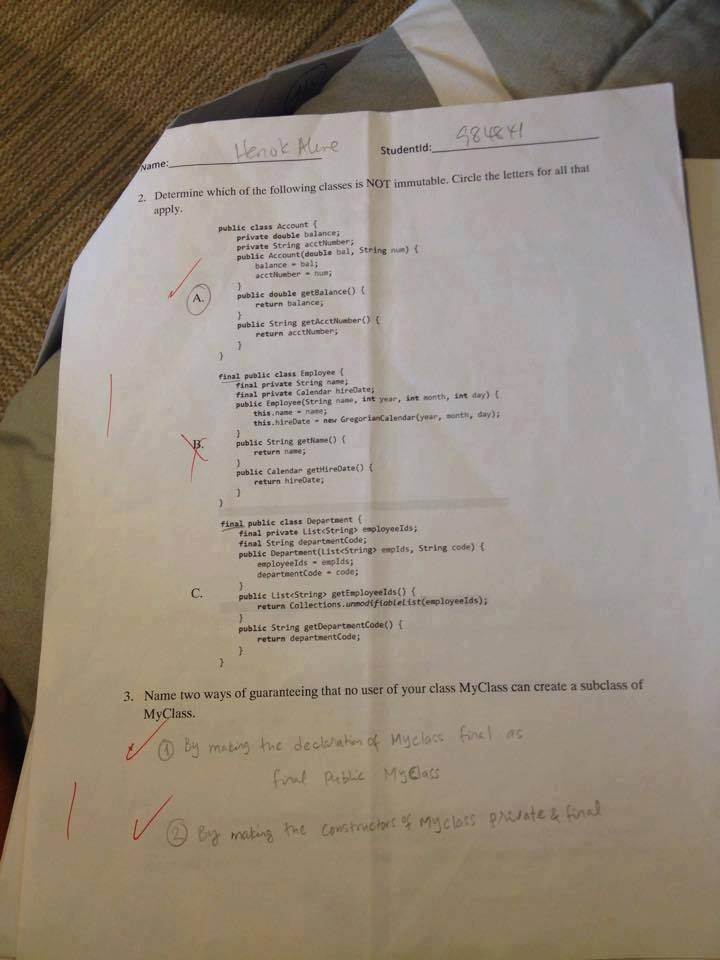 Name: Henok
StudentId: 984841
2. Determine which of the following classes is NOT immutable. Circle the letters for all that
apply.
public class Account {
private double balance;
private String acctNumber;
public Account(double bal, String num) {
balance = bal;
acctNumber = num;
}
A.
public double getBalance() {
return balance;
}
public String getAcctNumber() {
return acctNumber;
}
}
final public class Employee {
final private String name;
final private Calendar hireDate;
public Employee(String name, int year, int month, int day) {
this.name = name;
this.hireDate = new GregorianCalendar(year, month, day);
}
B.
public String getName() {
return name;
}
public Calendar getHireDate() {
return hireDate;
}
}
final public class Department {
final private List<String> employeeIds;
final String departmentCode;
public Department(List<String> empIds, String code) {
employeeIds = empIds;
departmentCode = code;
}
C.
public List<String> getEmployeeIds() {
return Collections.unmodifiableList(employeeIds);
}
public String getDepartmentCode() {
return departmentCode;
}
}
3. Name two ways of guaranteeing that no user of your class MyClass can create a subclass of
MyClass.
1 By making the declaration of Myclass final as
final Public MyClass
2 By making the constructors of Myclass private & final